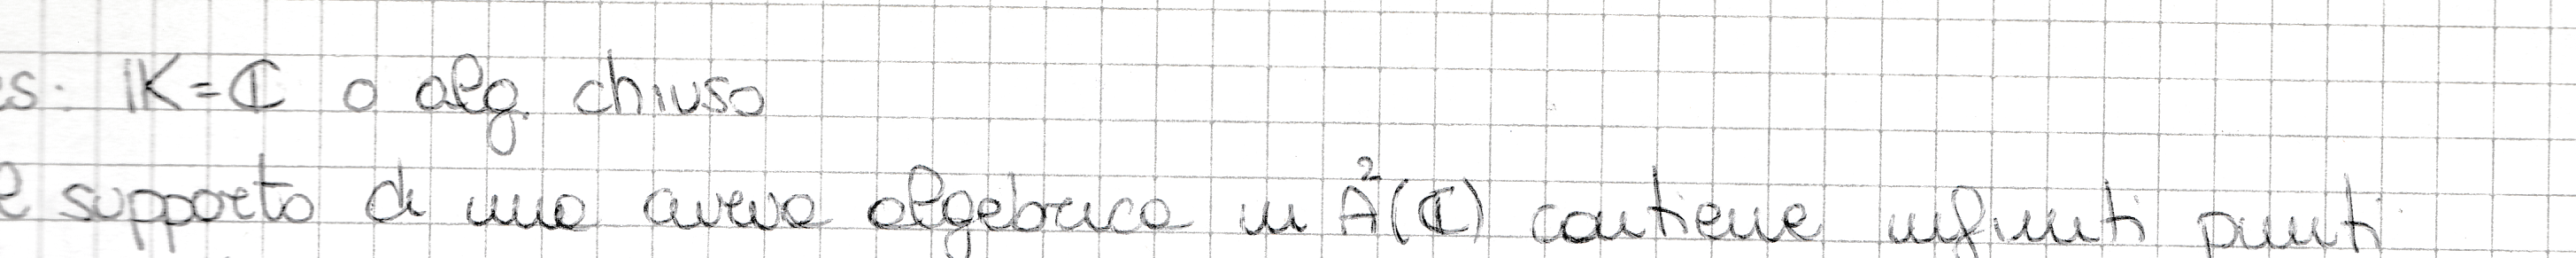 s: K=ℂ o alg. chiuso
l supporto di una curva algebrica in A²(ℂ) contiene infiniti punti